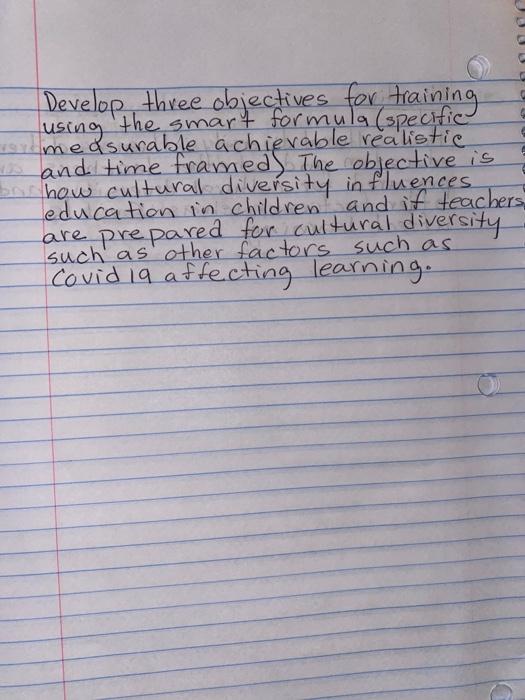 Develop three objectives for training
using the smart formula (specific
measurable achievable realistic
and time framed) The objective is
how cultural diversity influences
education in children and if teachers
are prepared for cultural diversity
such as other factors such as
Covid 19 affecting learning.